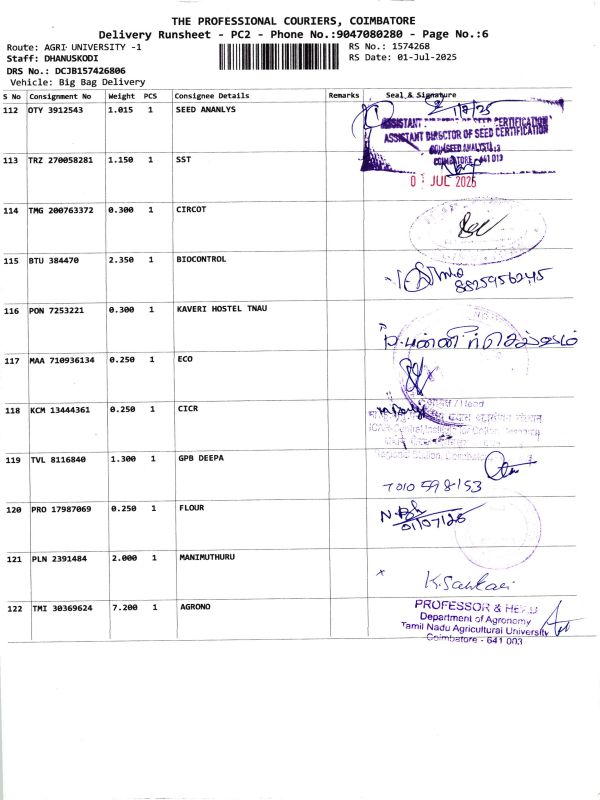 THE PROFESSIONAL COURIERS, COIMBATORE
Delivery Runsheet - PC2 - Phone No.:9047080280 - Page No.:6
Route: AGRI UNIVERSITY -1
RS No.: 1574268
Staff: DHANUSKODI
RS Date: 01-Jul-2025
DRS No.: DCJB157426806
Vehicle: Big Bag Delivery
S No Consignment No Weight PCS Consignee Details Remarks Seal & Signature
112 OTY 3912543 1.015 1 SEED ANANLYS
1/7/25
ASSISTANT DIRECTOR OF SEED CERTIFICATION
COIMBATORE - 641 013
113 TRZ 270058281 1.150 1 SST
0 1 JUL 2025
114 TMG 200763372 0.300 1 CIRCOT
115 BTU 384470 2.350 1 BIOCONTROL
8825956245
116 PON 7253221 0.300 1 KAVERI HOSTEL TNAU
117 MAA 710936134 0.250 1 ECO
118 KCM 13444361 0.250 1 CICR
/ Head
ICAR-Central Institute for Cotton Research
Regional Station, Coimbatore
119 TVL 8116840 1.300 1 GPB DEEPA
7010 598153
120 PRO 17987069 0.250 1 FLOUR
01/07/25
121 PLN 2391484 2.000 1 MANIMUTHURU
x
K. Sankari
122 TMI 30369624 7.200 1 AGRONO
PROFESSOR & HEAD
Department of Agronomy
Tamil Nadu Agricultural University
Coimbatore - 641 003